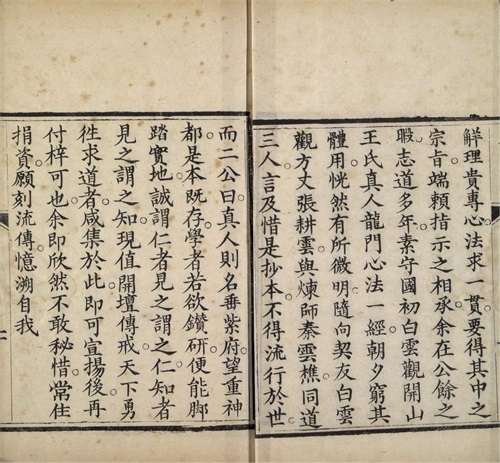 解理貴專心法求一貫要得其中之
宗㫖端賴指示之相承余在公餘之
暇志道多年素守國初白雲觀開山
王氏真人龍門心法一經朝夕窮其
體用恍然有所微明隨向契友白雲
觀方丈張耕雲與煉師秦雲樵同道
三人言及惜是抄本不得流行於世
而二公曰真人則名垂紫府望重神
都是本既存學者若欲鑽研便能脚
踏實地誠謂仁者見之謂之仁知者
見之謂之知現值開壇傳戒天下勇
徃求道者咸集於此即可宣揚後再
付梓可也余即欣然不敢秘惜常住
捐資願刻流傳憶溯自我